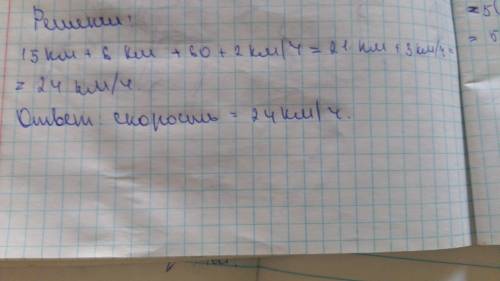 Решение:
15 км + 6 км + 60 + 2 км/ч = 21 км + 3 км/ч =
= 24 км/ч.
Ответ: скорость = 24 км/ч.
= 5